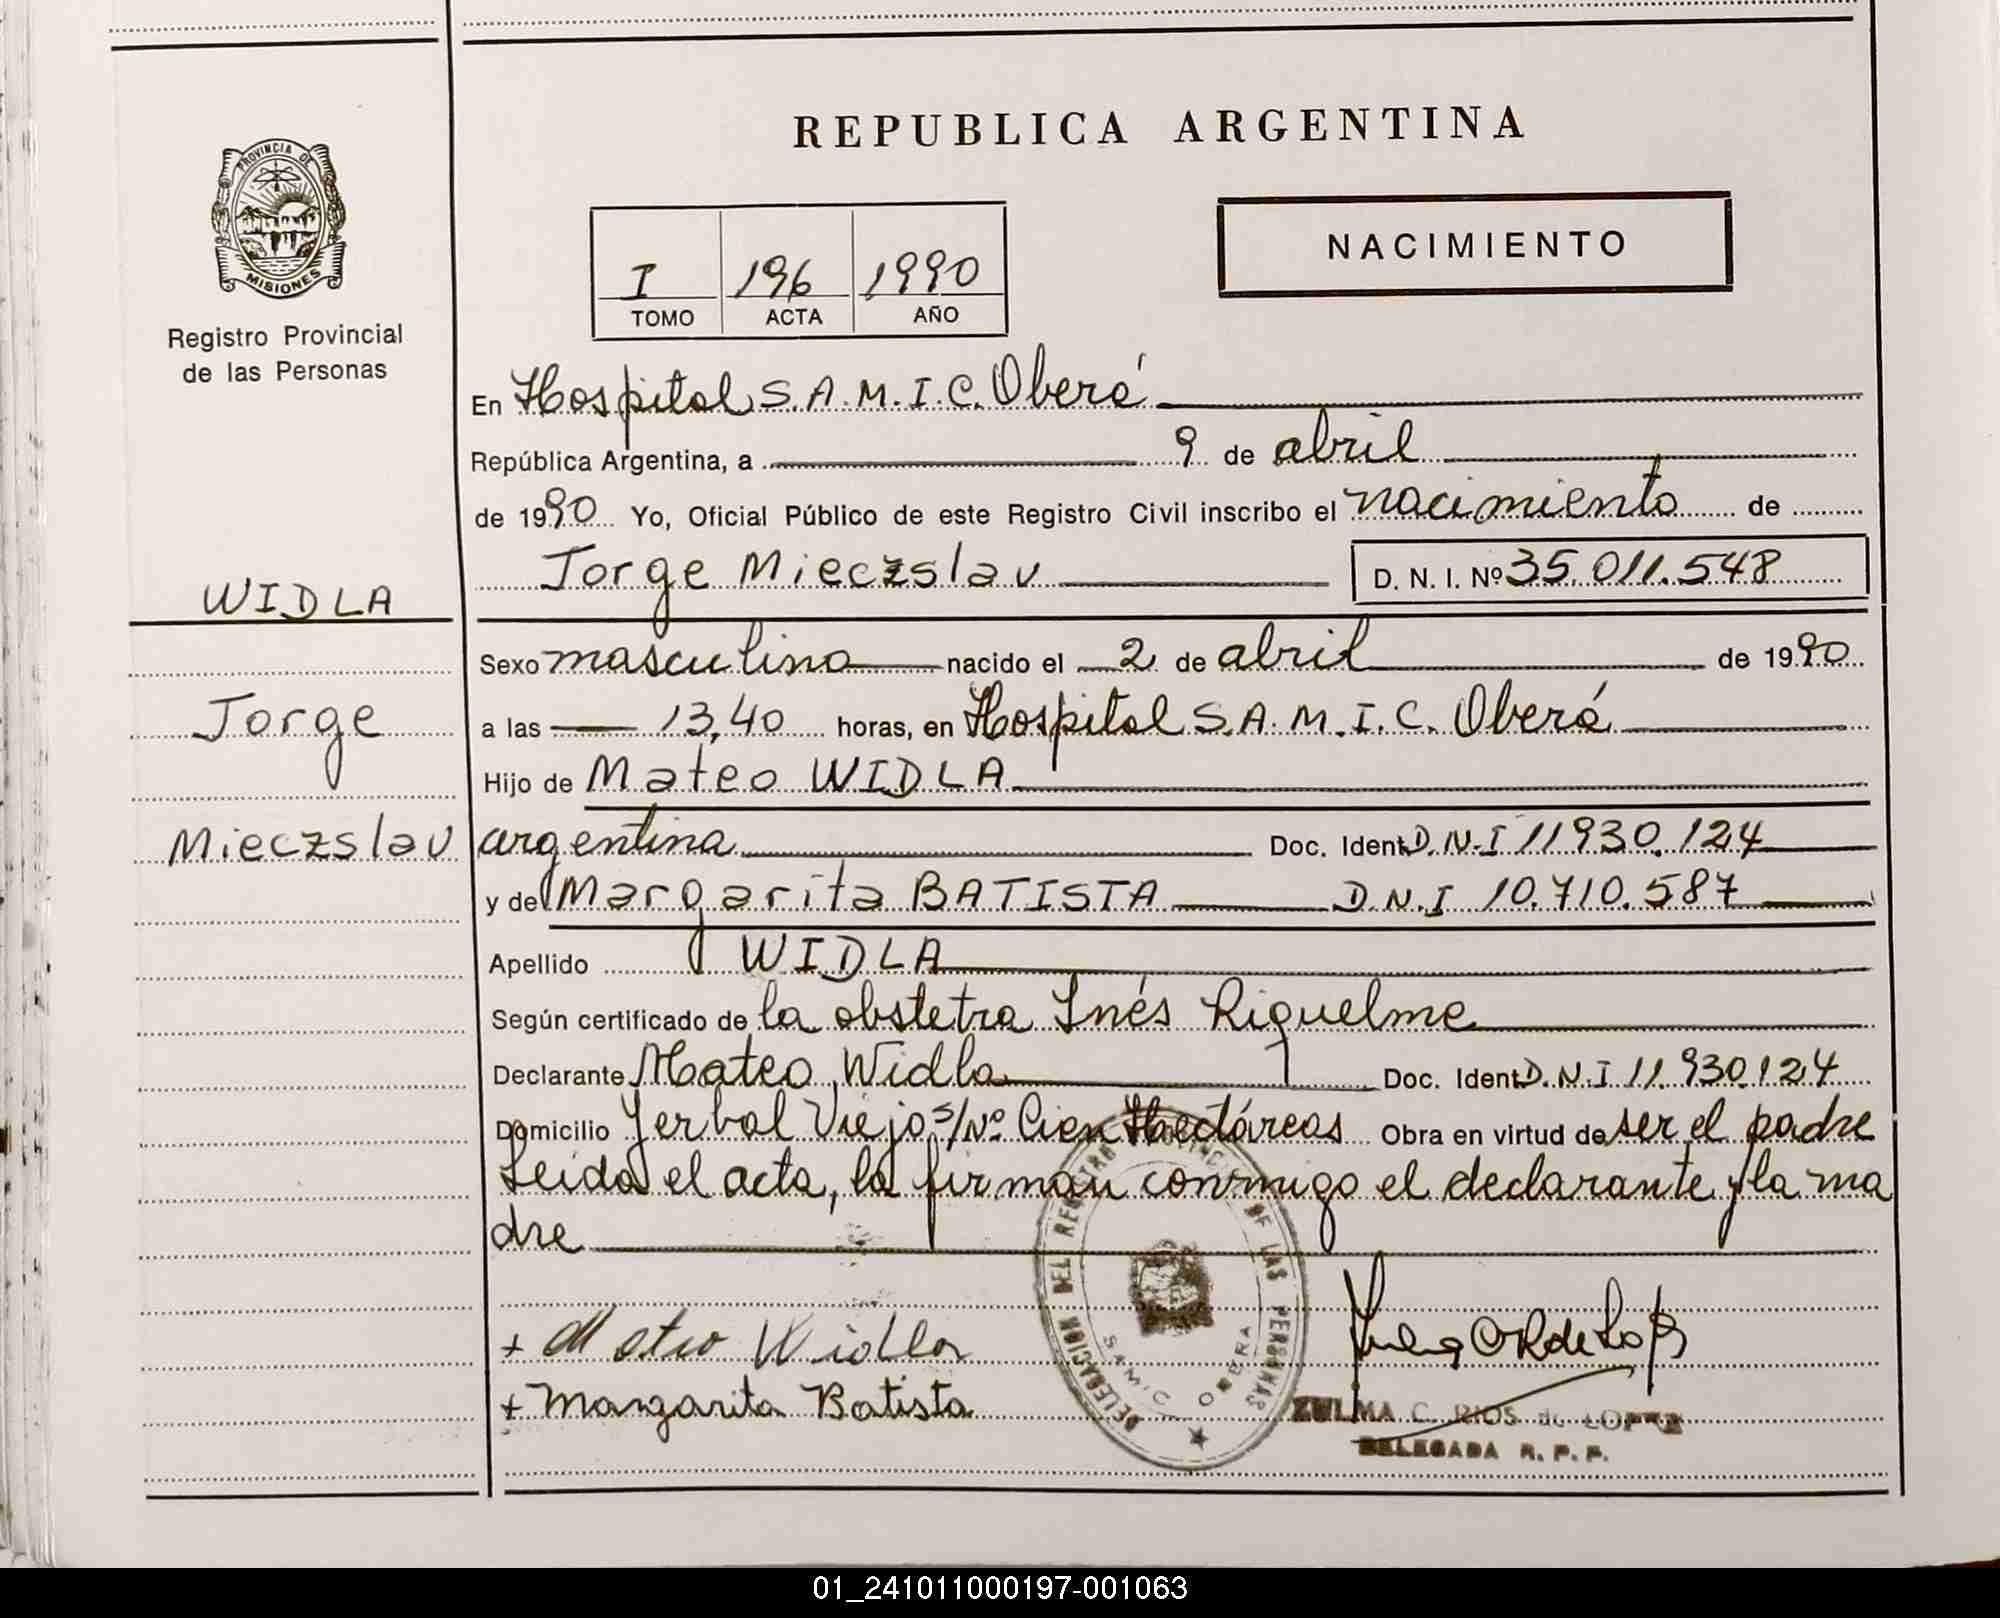 REPUBLICA ARGENTINA
PROVINCIA DE
MISIONES
Registro Provincial
de las Personas
NACIMIENTO
I 196 1990
TOMO ACTA AÑO
En Hospital S.A.M.I.C. Oberá
República Argentina, a 9 de abril
de 1990 Yo, Oficial Público de este Registro Civil inscribo el nacimiento de
Jorge Mieczslav D. N. I. Nº 35.011.548
WIDLA
Sexo masculino nacido el 2 de abril de 1990
Jorge
a las 13,40 horas, en Hospital S.A.M.I.C. Oberá
Hijo de Mateo WIDLA
Mieczslav
argentina Doc. Ident. D.N.I 11930.124
y de Margarita BATISTA D.N.I 10.710.587
Apellido WIDLA
Según certificado de la obstetra Inés Riquelme
Declarante Mateo Widla Doc. Ident. D.N.I 11.930.124
Domicilio Yerbal Viejo s/Nº Cien Hectáreas Obra en virtud de ser el padre
Leida el acta, la firman conmigo el declarante y la ma
dre
DELEGACION DEL REGISTRO PROVINCIAL DE LAS PERSONAS
SAMIC OBERA
+ Mateo Widla
+ Margarita Batista
ZULMA C. RIOS de LOPEZ
DELEGADA R. P. P.
01_241011000197-001063